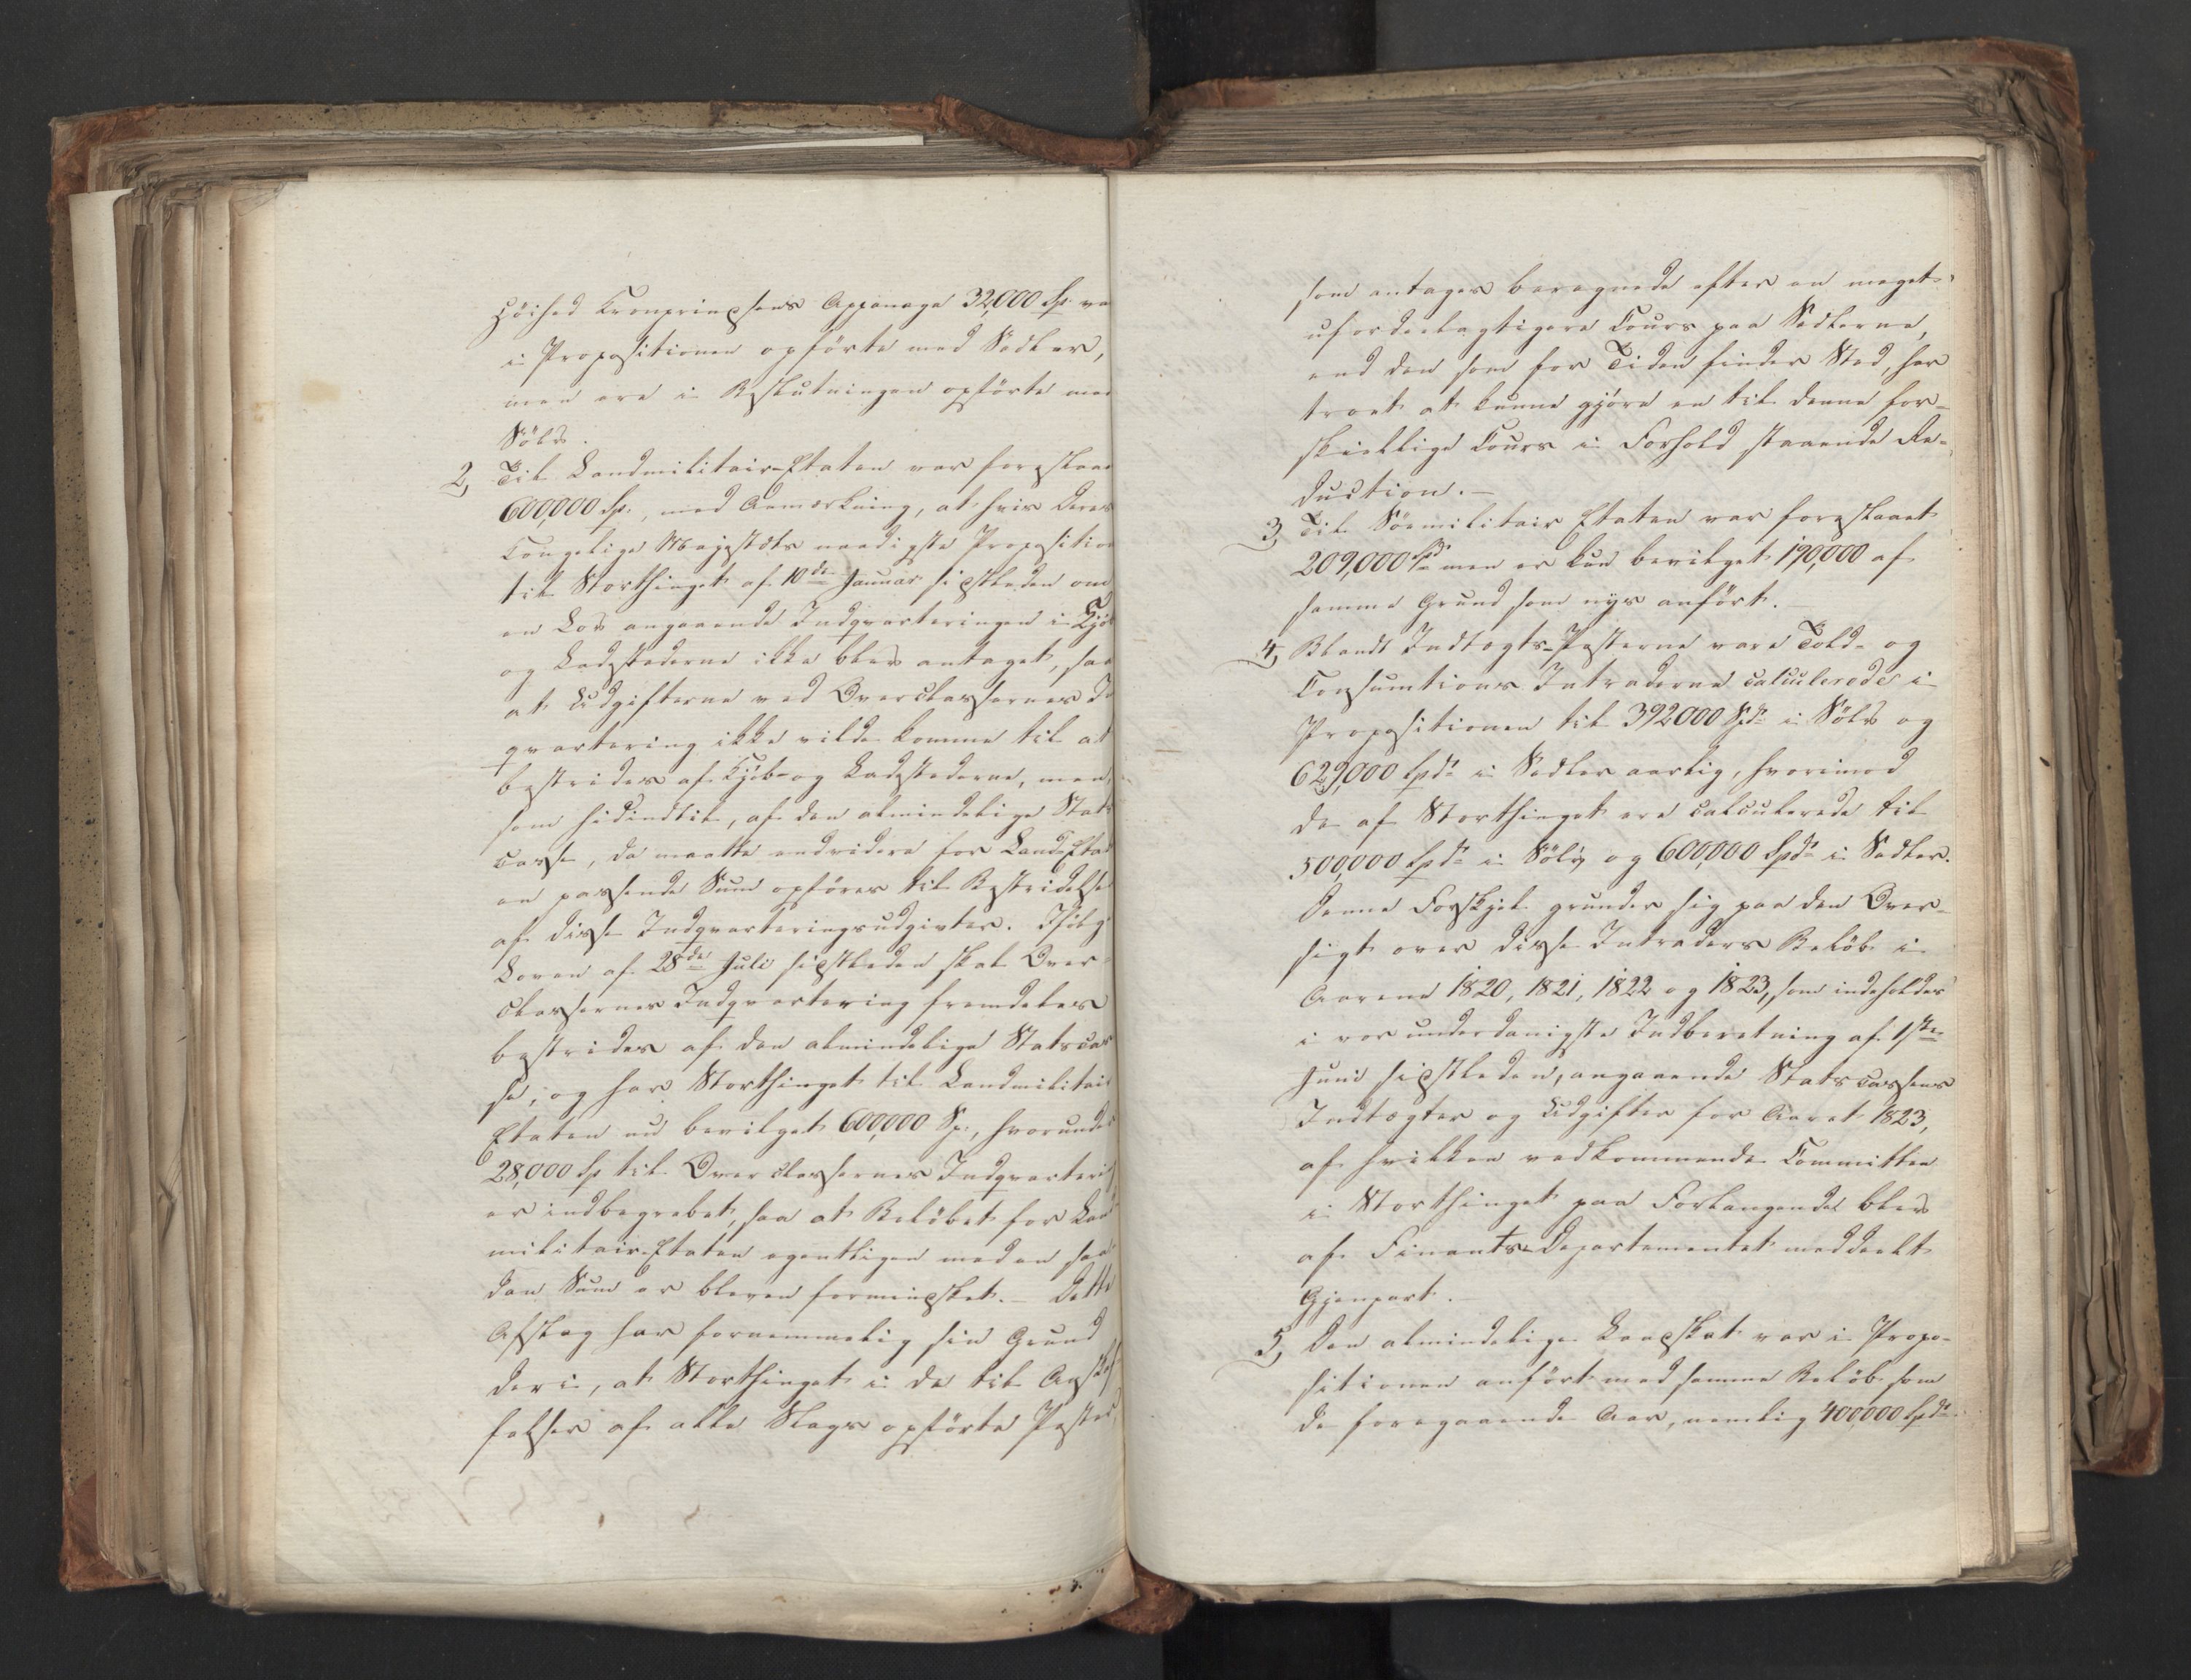 Höihed Kronprindsens Appanage 32,000 Sp. va
i Propositionen opförte med Sedler,
men ere i Beslutningen opförte med
Sölv.
2, Til Landmilitair-Etaten var foreslaaet
600,000 Sp., med Anmærkning, at hvis Deres
Kongelige Majestæts naadigste Proposition
til Storthinget af 10de Januar sidstleden om
en Lov angaaende Indqvarteringen i Kjöb
og Ladestederne ikke blev antaget, saa
at Udgifterne ved Overclassernes In
qvartering ikke vilde komme til at
bestrides af Kjöb- og Ladestederne, men,
som hidindtil, af den almindelige Stats
casse, da maatte endvidere for Land-Etat
en passende Sum opföres til Bestridelse
af disse Indqvarteringsudgivter. Ifölge
Loven af 28de Juli sidstleden skal Over-
classernes Indqvartering fremdeles
bestrides af den almindelige Statscas
se, og har Storthinget til Landmilitair
Etaten nu bevilget 600,000 Sp., hvorunder
28,000 Sp til Overclassernes Indqvartering
er indbegrebet, saa at Belöbet for Land
militair-Etaten egentligen med en saa
dan Sum er bleven formindsket. – Dette
Afslag har fornemmelig sin Grund
deri, at Storthinget i de til Anskaf
felser af alle Slags opförte Poster,
som antages beregnede efter en meget
ufordeelagtigere Cours paa Sedlerne,
end den som for Tiden finder Sted, har
troet at kunne gjöre en til denne for-
skiellige Cours i Forhold staaende Re-
duction. –
3, Til Söemilitair Etaten var foreslaaet
209,000 Spd men er kun bevilget 190,000 af
samme Grund som nys anfört.
4, Blandt Indtægts-Posterne vare Told- og
Consumtions Intraderne calculerede i
Propositionen til 392000 Spd i Sölv og
629,000 Spd i Sedler aarlig, hvorimod
de af Storthinget ere calculerede til
500,000 Spd i Sölv og 600,000 Spd i Sedler.
Denne Forskjel grunder sig paa den Over-
sigt over disse Intraders Belöb i
Aarene 1820, 1821, 1822 og 1823, som indeholdes
i vor underdanigste Indberetning af 1ste
Juni sidstleden, angaaende Statscassens
Indtægter og Udgifter for Aaret 1823,
af hvilken vedkommende Committee
i Storthinget paa Forlangende blev
af Finants-Departementet meddeelt
Gjenpart.
5, Den almindelige Landskat var i Propo-
sitionen anfört med samme Belöb som
de foregaaende Aar, nemlig 400,000 Spd